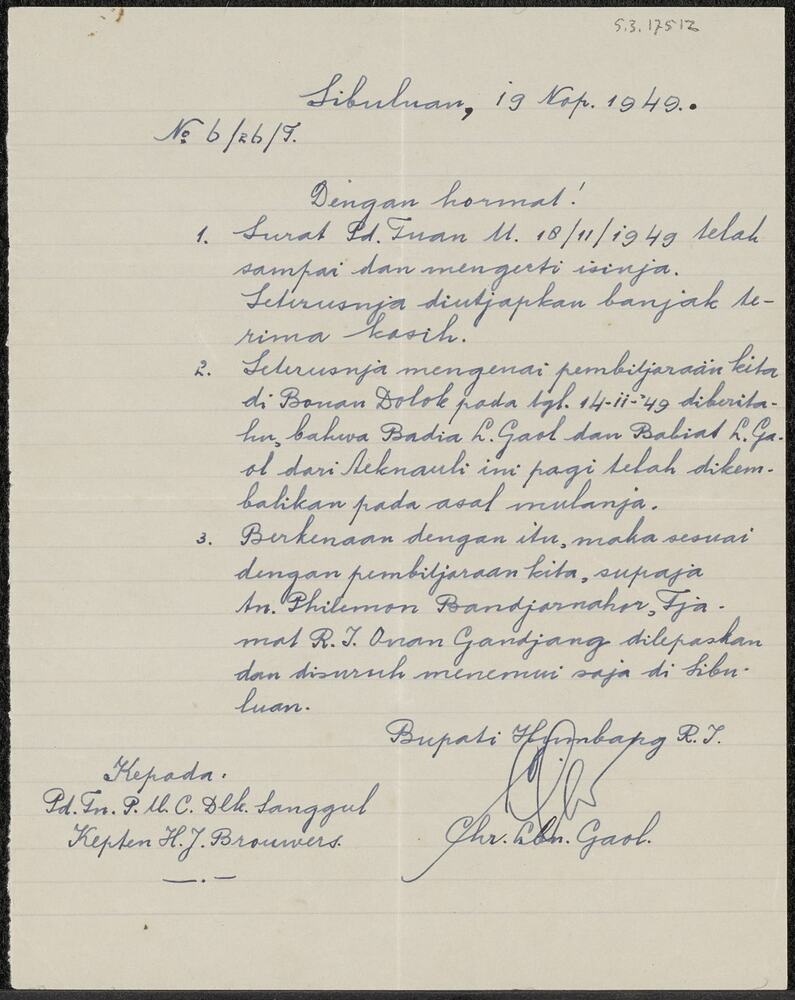 S.3.17512
Sibuluan, 19 Nop. 1949.
No 6/26/T.
Dengan hormat!
1. Surat Pd. Tuan tt. 18/11/1949 telah
sampai dan mengerti isinja.
Seterusnja diutjapkan banjak te-
rima kasih.
2. Seterusnja mengenai pembitjaraän kita
di Bonan Dolok pada tgl. 14-11-'49 diberita-
hu, bahwa Badia L. Gaol dan Baliat L. Ga-
ol dari Aeknauli ini pagi telah dikem-
balikan pada asal mulanja.
3. Berkenaan dengan itu, maka sesuai
dengan pembitjaraan kita, supaja
tn. Philemon Bandjarnahor, Tja-
mat R.I. Onan Gandjang dilepaskan
dan disuruh menemui saja di Sibu-
luan.
Bupati Humbang R.I.
Chr. Lbn. Gaol.
Kepada.
Pd. Tn. P. tt. C. Dlk. Sanggul
Kepten H.J. Brouwers.